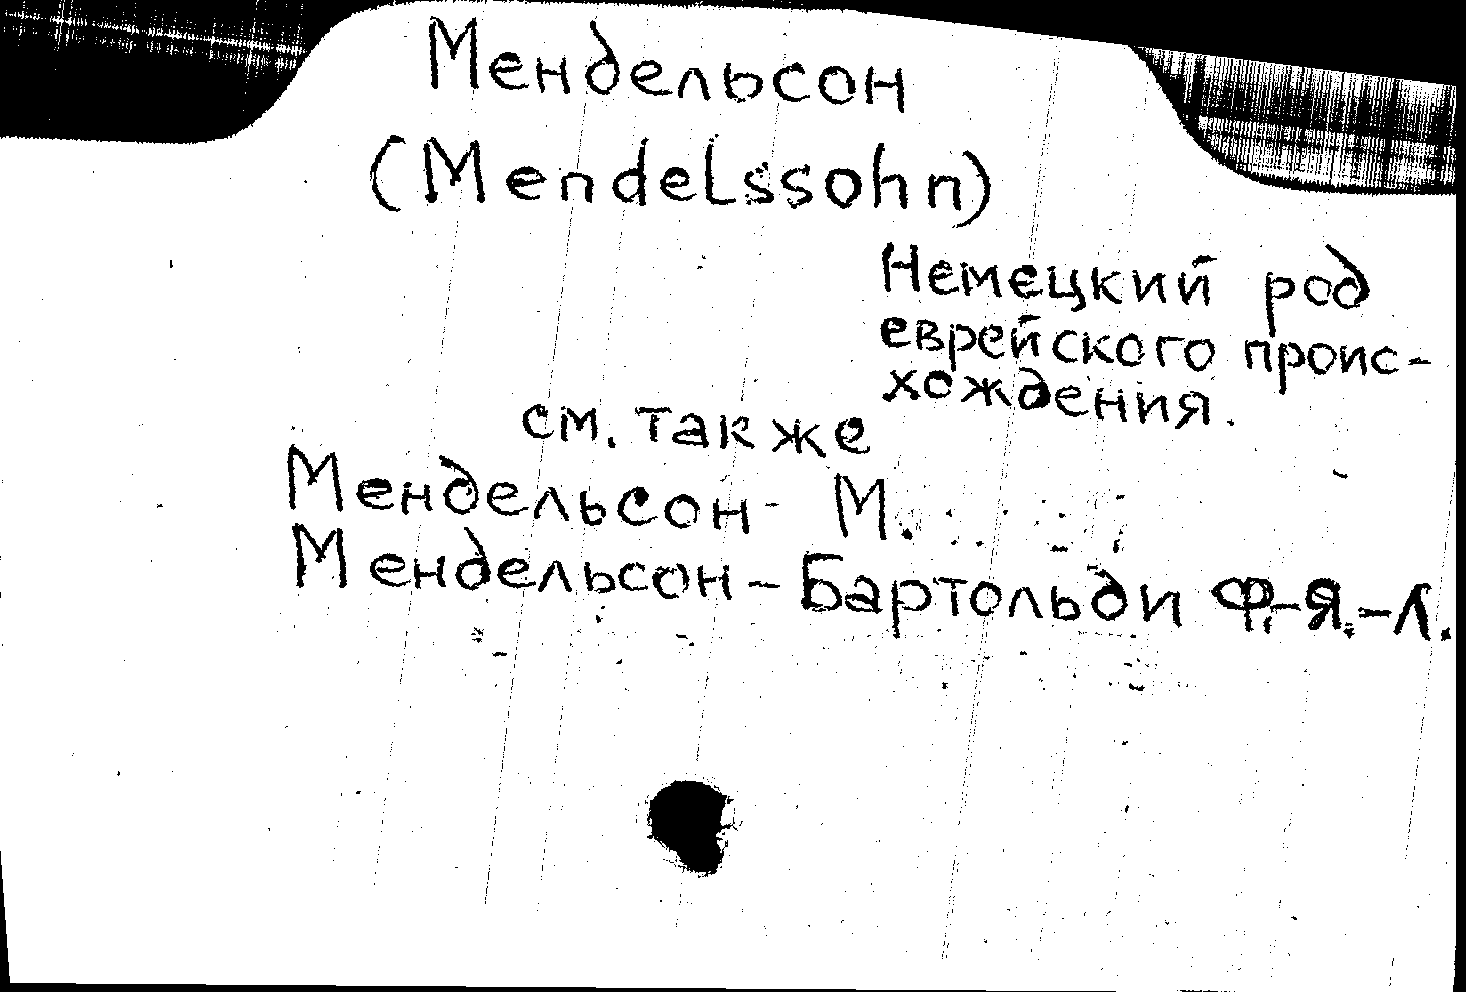 Мендельсон
(Mendelssohn)
Немецкий род
еврейского проис-
хождения.
см. также
Мендельсон М.
Мендельсон-Бартольди Ф.-Я.-Л.